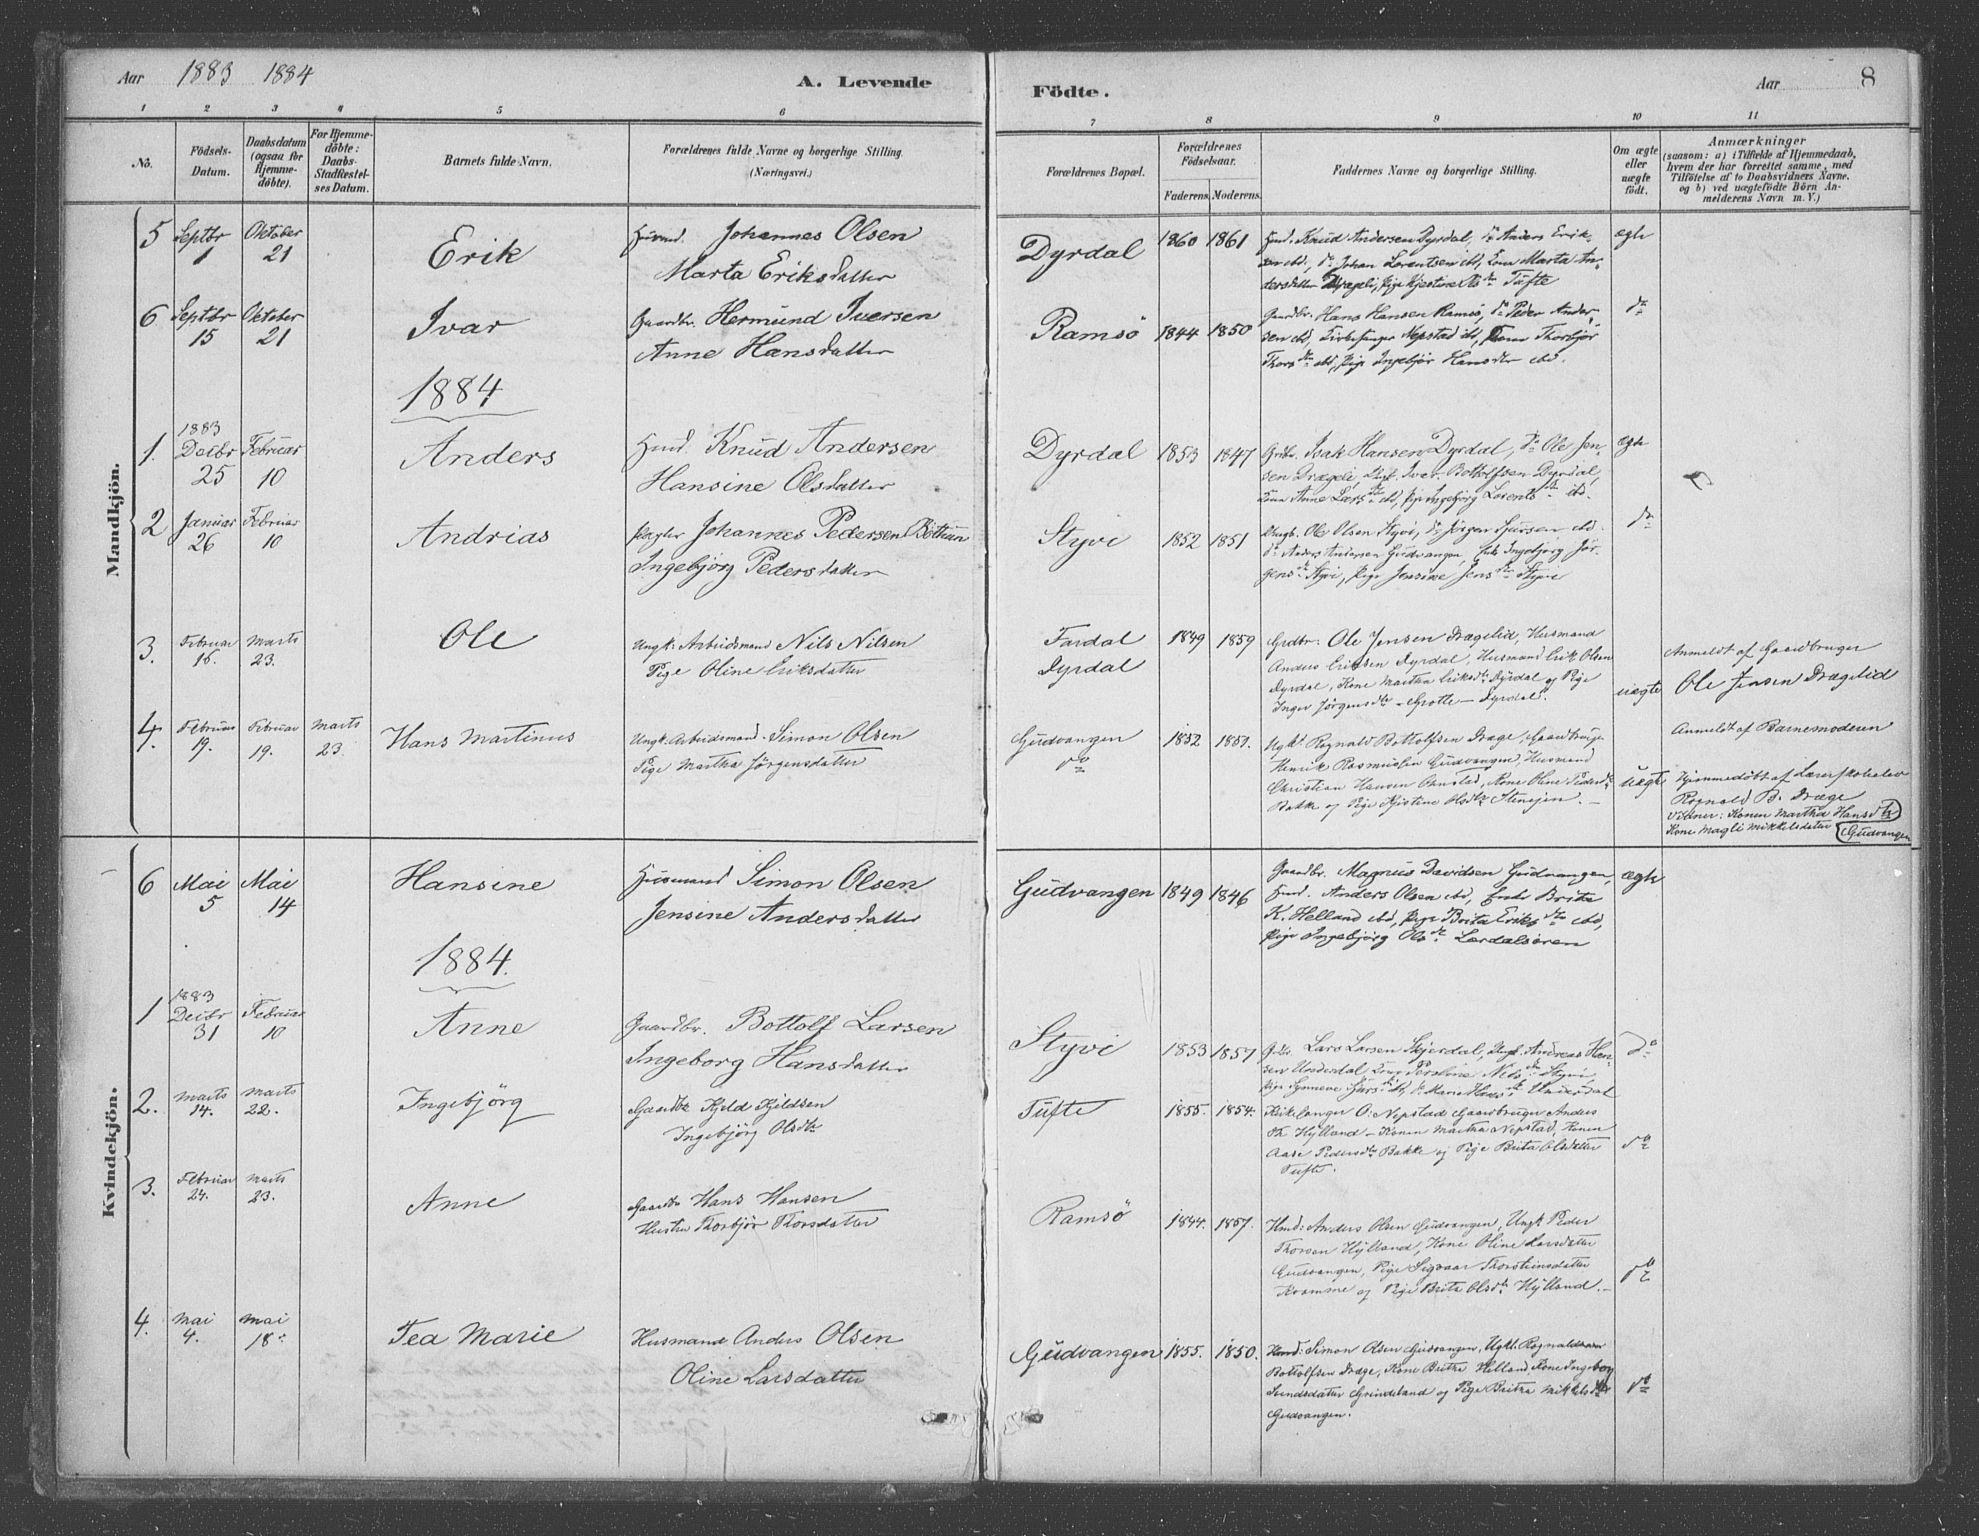 Aar 1883 1884
A. Levende
Födte.
Aar
8
1 2 3 4 5 6 7 8 9 10 11
No.
Födsels-
Datum.
Daabsdatum
(ogsaa for
Hjemme-
döbte).
For Hjemme-
döbte:
Daabs-
Stadfæstel-
ses Datum.
Barnets fulde Navn.
Forældrenes fulde Navne og borgerlige Stilling.
(Næringsvei.)
Forældrenes Bopæl.
Forældrenes
Födselsaar.
Faderens.
Moderens.
Faddernes Navne og borgerlige Stilling.
Om ægte
eller
uægte
födt.
Anmærkninger
(saasom: a) i Tilfælde af Hjemmedaab,
hvem der har forrettet samme, med
Tilföielse af to Daabsvidners Navne.
og b) ved uægtefödte Börn An-
melderens Navn m. V.)
Mandkjön.
5 Septbr 1 Oktober 21 Erik
Husmd. Johannes Olsen
Marta Eriksdatter
Dyrdal 1860 1861
Husmd. Knud Andersen Dyrdal, do Anders Erik-
sen ibd, do Johan Lorentsen ibd, Kone Marta An-
dersdatter Drægeli, Pige Kjestine Tufte
ægte
6 Septbr 15 Oktober 21 Ivar
Gaardbr. Hermund Iversen
Anne Hansdatter
Ramsö 1844 1850
Gaardbr. Hans Hansen Ramsö, do Peder Ander-
sen ibd, Kirkesanger Nepstad ibd, Kone Thorbjör
Thorsdtr ibd, Pige Ingebjör Hansdtr ibd.
do
1884
1. 1883 Decbr 25 Februar 10 Anders
Husmd. Knud Andersen
Hansine Olsdatter
Dyrdal 1853 1847
Grdbr. Isak Hansen Dyrdal, do Ole Jen-
sen Drægeli, Ungk. Iver Bottolfsen Dyrdal,
Kone Anne Larsdtr ibd, Pige Ingebjörg Lorentsdtr ibd.
ægte
2 Januar 26 Februar 10 Andrias
Johannes Pedersen Böthun
Ingebjörg Pedersdatter
Styvi 1852 1851
Ungk. Ole Olsen Styvi, do Jörgen Sjursen ibd.
do Anders Andersen Gudvangen, Enke Ingebjörg Jör-
gensdtr Styvi, Pige Jensine Jensdtr Styvi
do
3. Februar 16. Marts 23. Ole
Ungk: Arbeidsmand Nils Nilsen
Pige Oline Eriksdatter
Fardal
Dyrdal
1849 1859
Grdbr: Ole Jensen Drægelid, Husmand
Anders Eriksen Dyrdal, Husmand Erik Olsen
Dyrdal, Kone Martha Eriksdtr Dyrdal og Pige
Inger Jörgensdtr - Grotle - Dyrdal.
uægte
Anmeldt af Gaardbruger
Ole Jensen Drægelid
4. Februar 19. Februar 19. Marts 23. Hans Martinus
Ungk. Arbeidsmand. Simon Olsen
Pige Martha Jörgensdatter
Gudvangen
do
1852 1851.
Ungk: Rognald Bottolfsen Dræge, Gaardbruger
Henrik Rasmussen Gudvangen, Husmand
Christian Hansen Ornstad, Kone Oline Pedersdtr
Bakke og Pige Kjistine Olsdtr Stensjen.
uægte
Anmeldt af Barnemoderen
Hjemmedöbt af Lærerskoleelev
Rognald B. Dræge
Vidner: Konen Martha Hansdtr
Kone Magli Mikkelsdatter Gudvangen
Kvindekjön.
6 Mai 5 Mai 14 Hansine
Husmand Simon Olsen
Jensine Andersdatter
Gudvangen 1849 1846
Gaardbr. Magnus Davidsen Gudvangen,
Husmd. Anders Olsen ibd, Enke Brita
K. Helland ibd, Pige Brita Eriksdtr ibd,
Pige Ingebjörg Olsdtr Lærdalsören
ægte
1884.
1 1883 Decbr 31 Februar 10 Anne
Gaardbr. Bottolf Larsen
Ingeborg Hansdatter
Styvi 1853 1857
Grdbr. Lars Larsen Skjerdal, Ungk. Andreas Han-
sen Undredal, Kone Nilsdtr Styvi
Pige Synneve Sjursdtr ibd, do Marie Hansdtr Undredal
do
2. Marts 14. Marts 22. Ingebjörg
Gaardbr Kjeld Kjeldsen
Ingebjörg Olsdtr
Tufte 1855. 1854.
Kirkesanger O. Nepstad Gaardbruger Anders
Th Hylland - Konen Martha Nepstad, Konen
Aase Pedersdtr Bakke og Pige Brita Olsdatter
Tufte.
do
3. Februar 24. Marts 23. Anne
Gaardbr Hans Hansen
Hustru Thorbjör Thorsdatter
Ramsö 1844. 1857.
Husmd: Anders Olsen Gudvangen, Ungk Peder
Thorsen Hylland, Kone Oline Larsdatter
Gudvangen, Pige Sigvaar Thorsteinsdatter
Kvamme og Pige Brita Olsdtr Hylland.
do
4. Mai 4. Mai 18. Tea Marie
Husmand Anders Olsen
Oline Larsdatter
Gudvangen 1855. 1850.
Husmd: Simon Olsen Gudvangen, Ungk. Rognald
Bottolfsen Dræge, Kone Britha Helland, Kone Ingeborg
Svendsdatter Grindeland og Pige Britha Mikkelsdtr
Gudvangen.
do